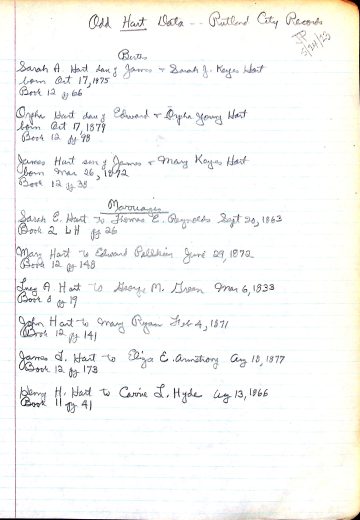 Odd Hart Data -- Rutland City Records
JP
3/24/23
Births
Sarah A. Hart dau of James + Sarah J. Keyes Hart
born Oct 17, 1875
Book 12 pg 66
Orpha Hart dau of Edward + Orpha Young Hart
born Oct 17, 1879
Book 12 pg 98
James Hart son of James + Mary Keyes Hart
born Mar 26, 1872
Book 12 pg 38
Marriages
Sarah E. Hart to Thomas E. Reynolds Sept 20, 1863
Book 2 LH pg 26
Mary Hart to Edward June 29, 1872
Book 12 pg 148
Lucy A. Hart to George M. Green Mar 6, 1833
Book 8 pg 19
John Hart to Mary Ryan Feb 4, 1871
Book 12 pg 141
James J. Hart to Eliza E. Armstrong Aug 18, 1877
Book 12 pg 173
Henry H. Hart to Carrie L. Hyde Aug 13, 1866
Book 11 pg 41